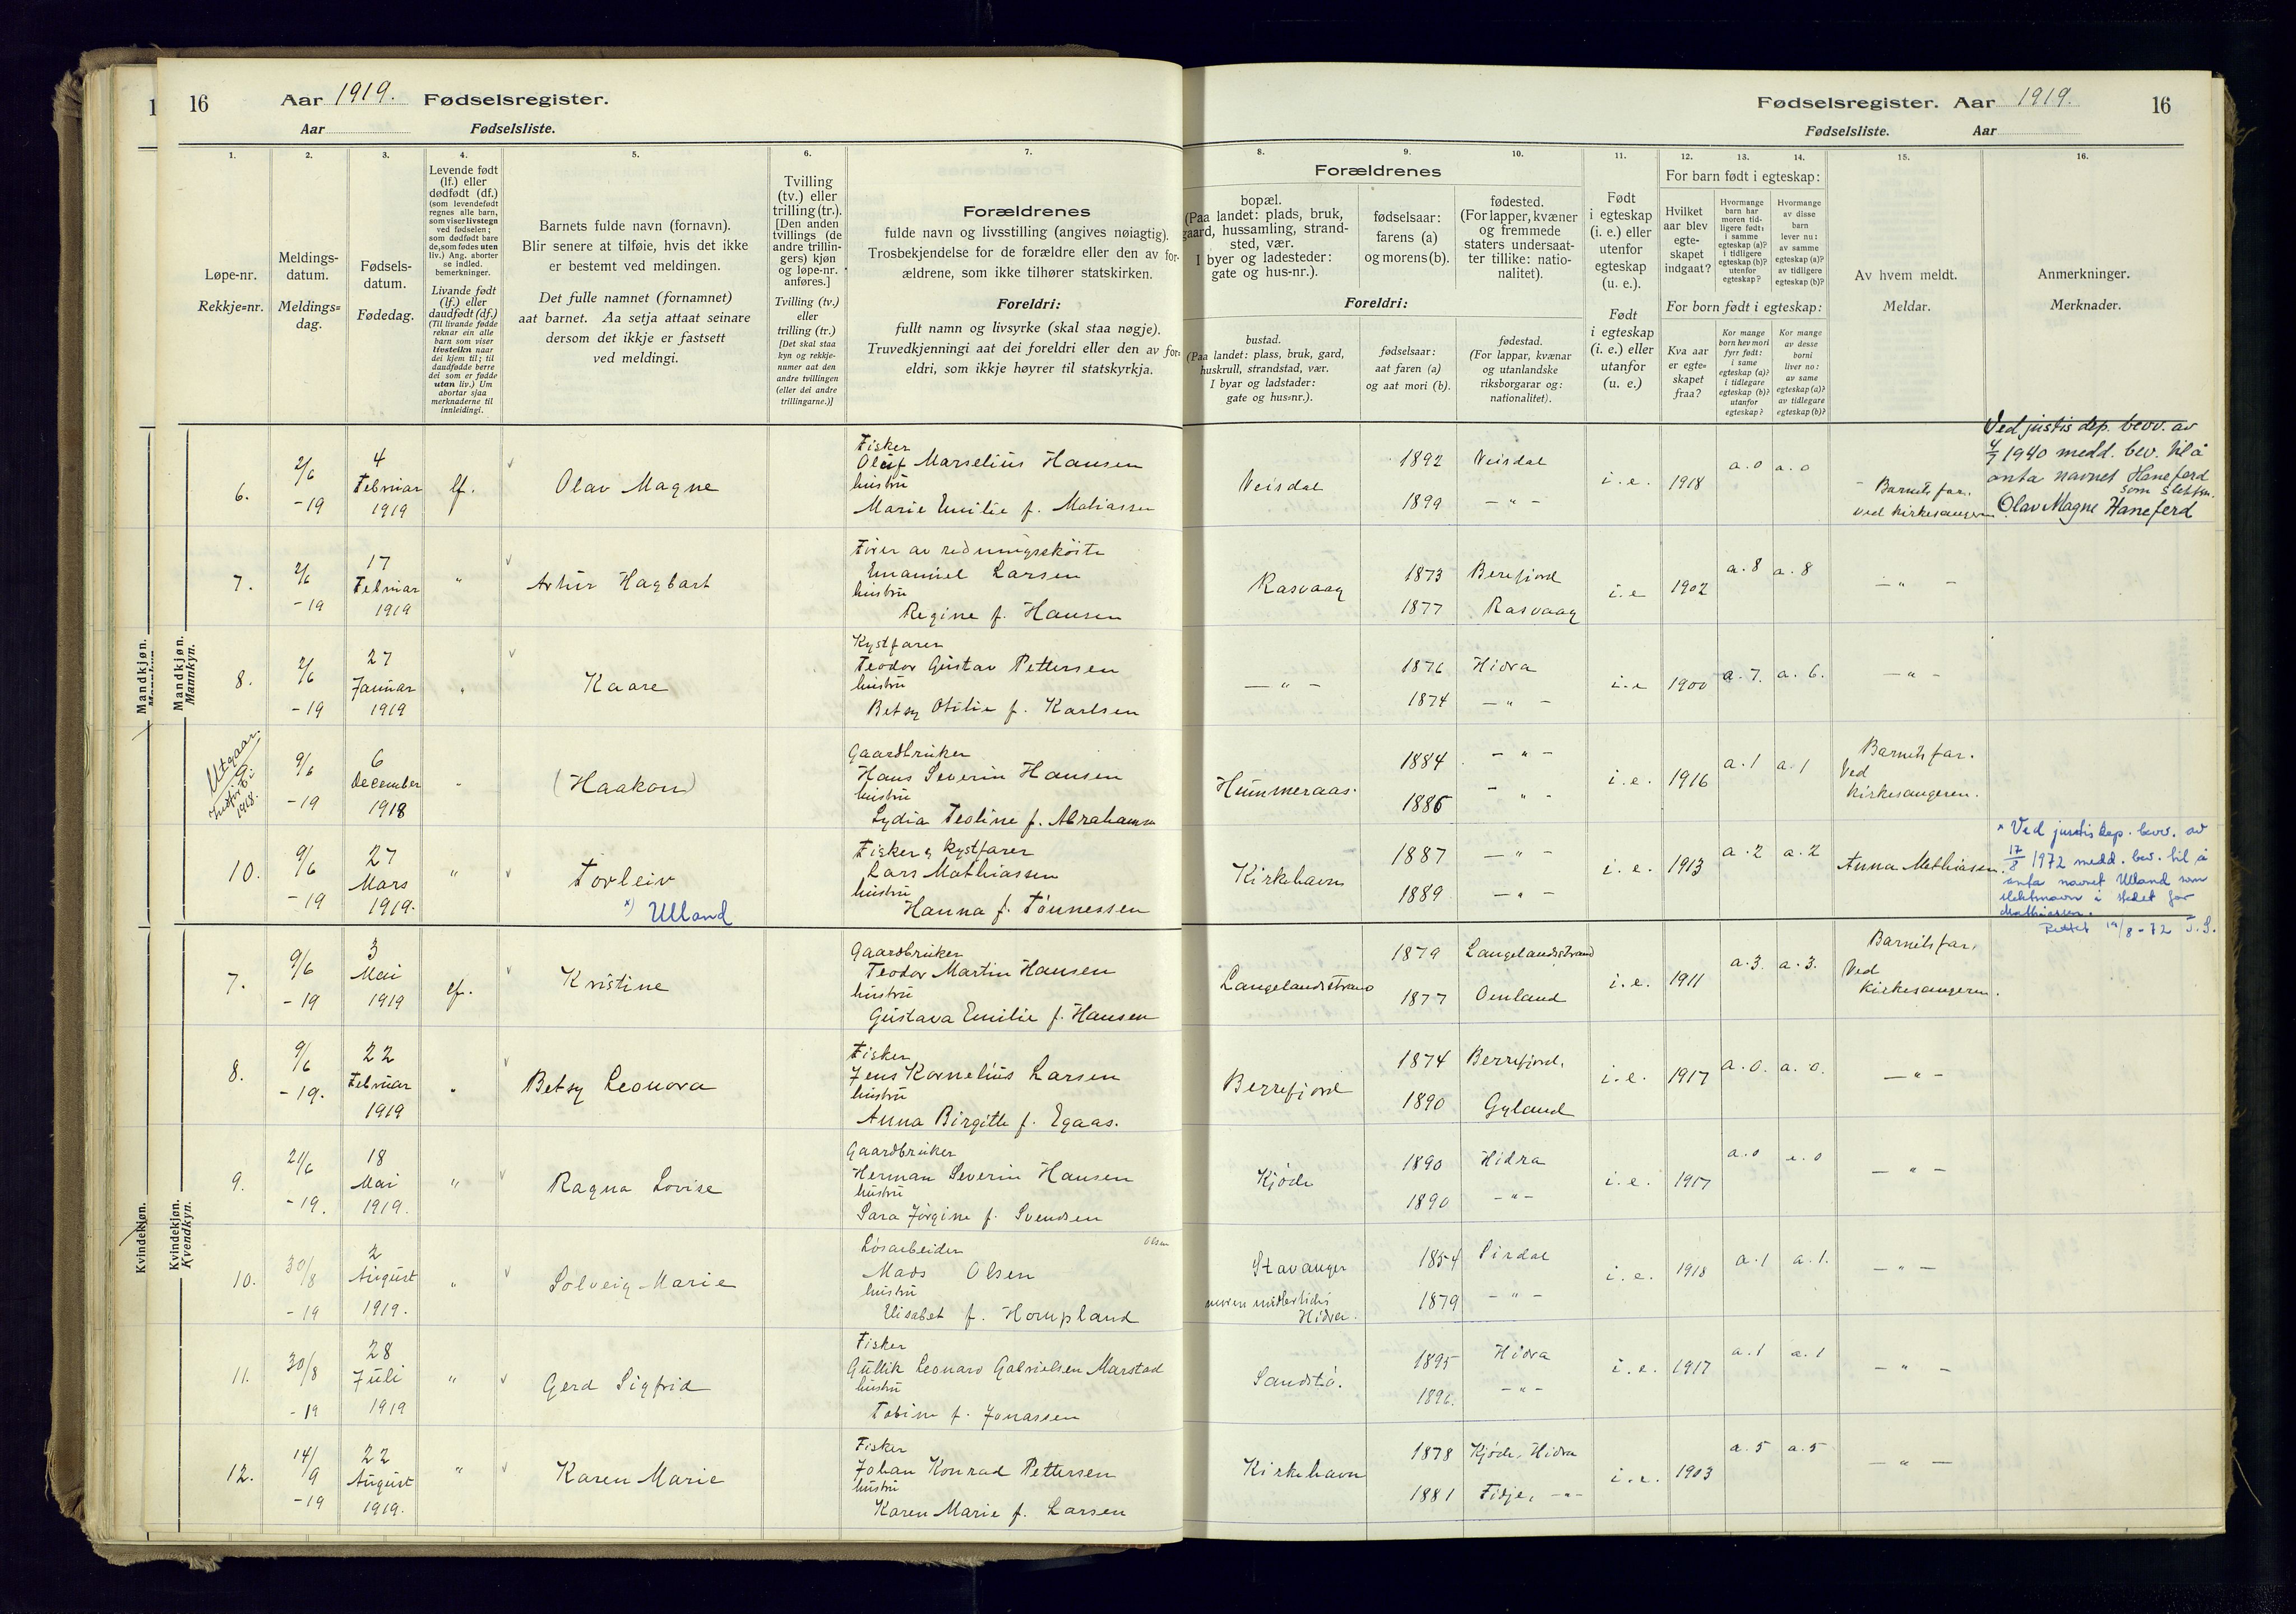 16 Aar 1919. Fødselsregister.
Aar Fødselsliste.
Fødselsregister. Aar 1919. 16
Fødselsliste. Aar
1. 2. 3. 4. 5. 6. 7. 8. 9. 10. 11. 12. 13. 14. 15. 16.
Løpe-nr.
Rekkje=nr.
Meldings-
datum.
Meldings=
dag.
Fødsels-
datum.
Fødedag.
Levende født
(lf.) eller
dødfødt (df.)
(som levendefødt
regnes alle barn,
som viser livstegn
ved fødselen;
som dødfødt bare
de, som fødes uten
liv.) Ang. aborter
se indled.
bemerkninger.
Livande født
(lf.) eller
daudfødt (df.)
(Til livande fødde
reknar ein alle
barn som viser
livsteikn naar
dei kjem til; til
daudfødde berre
dei som er fødde
utan liv.) Um
abortar sjaa
merknaderne til
innleidingi.
Barnets fulde navn (fornavn).
Blir senere at tilføie, hvis det ikke
er bestemt ved meldingen.
Det fulle namnet (fornamnet)
aat barnet. Aa setja attaat seinare
dersom det ikkje er fastsett
ved meldingi.
Tvilling
(tv.) eller
trilling (tr.).
[Den anden
tvillings (de
andre trillin-
gers) kjøn
og løpe-nr.
anføres.]
Tvilling (tv.)
eller
trilling (tr.)
[Det skal staa
kyn og rekkje-
numer aat den
andre tvillingen
(eller dei andre
trillingarne.)]
Forældrenes
fulde navn og livsstilling (angives nøiagtig).
Trosbekjendelse for de forældre eller den av for-
ældrene, som ikke tilhører statskirken.
Foreldri:
fullt namn og livsyrke (skal staa nøgje).
Truvedkjenningi aat dei foreldri eller den av for-
eldri, som ikkje høyrer til statskyrkja.
Forældrenes
bopæl.
(Paa landet: plads, bruk,
gaard, hussamling, strand-
sted, vær.
I byer og ladesteder:
gate og hus-nr.).
fødselsaar:
farens (a)
og morens (b).
fødested.
(For lapper, kvæner
og fremmede
staters undersaat-
ter tillike: natio-
nalitet).
Foreldri:
bustad.
(Paa landet: plass, bruk, gard,
huskrull, strandstad, vær.
I byar og ladstader:
gate og hus=nr.).
fødselsaar:
aat faren (a)
og aat mori (b).
fødestad.
(For lappar, kvænar
og utanlandske
riksborgarar og:
nationalitet).
Født
i egteskap
(i. e.) eller
utenfor
egteskap
(u. e.).
Født
i egteskap
(i. e.) eller
utanfor
(u. e.)
For barn født i egteskap:
Hvilket
aar blev
egte-
skapet
indgaat?
Hvormange
barn har
moren tid-
ligere født:
i samme
egteskap (a)?
i tidligere
egteskap (b)?
utenfor
egteskap?
Hvormange
av disse
barn
lever nu:
av samme
egteskap (a)?
av tidligere
egteskap (b)?
For born født i egteskap:
Kva aar
er egte=
skapet
fraa?
Kor mange
born hev mori
fyrr født:
i same
egteskap (a)?
i tidlegare
egteskap (b)?
utanfor
egteskap?
Kor mange
av desse
borni
liver no:
av same
egteskap (a)?
av tidlegare
egteskap (b)?
Av hvem meldt.
Meldar.
Anmerkninger.
Merknader.
Mandkjøn.
Mannkyn.
6. 2/6 -19 4 Februar 1919 lf. Olav Magne
Fisker
Oluf Marselius Hansen
hustru
Marie Emilie f. Matiassen
Veisdal 1892 Veisdal
1899 — " —
i. e. 1918 a. 0 a. 0
Barnets far.
ved kirkesangeren
Ved justis dep. bevv. av
4/7 1940 medd. bev. til å
anta navnet Haneferd
som slektsn.
Olav Magne Haneferd
7. 2/6 -19 17 Februar 1919 " Artur Hagbart
Fører av redningsskøite
Emanuel Larsen
hustru
Regine f. Hansen
Rasvaag 1873 Berefjord
1877 Rasvaag
i. e 1902 a. 8 a. 8 — " —
8. 2/6 -19 27 Januar 1919 " Kaare
Kystfarer
Teodor Gustav Pettersen
hustru
Betsy Otilie f. Karlsen
— " — 1876 Hidra
1874 — " —
i. e 1900 a. 7. a. 6. — " —
Utgaar.
Indført i
1918.
9/6 -19 6 December 1918 " (Haakon)
Gaardbruker
Hans Severin Hansen
hustru
Lydia Teoline f. Abrahamsen
Hummeraas. 1884 — " —
1886 — " —
i. e. 1916 a. 1 a. 1
Barnets far.
Ved
kirkesangeren.
10. 9/6 -19 27 Mars 1919. " Torleiv
x) Ulland
Fisker og kystfarer
Lars Mathiassen
hustru
Hanna f. Tønnessen
Kirkehavn 1887 — " —
1889 — " —
i. e. 1913 a. 2 a. 2 Anna Mathiassen.
x Ved justisdep. bevv. av
17/8 1972 medd. bev. til å
anta navnet Ulland som
slektsnavn i stedet for
Mathiassen.
Rettet 19/8 - 72 T. S.
Kvindekjøn.
Kvendkyn.
7. 9/6 -19 3 Mai 1919 lf. Kristine
Gaardbruker
Teodor Martin Hansen
hustru
Gustava Emilie f. Hansen
Langelandsstrand 1879 Langelandsstrand
1877 Omland
i. e. 1911 a. 3. a. 3.
Barnets far.
Ved
kirkesangeren.
8. 9/6 -19. 22 Februar 1919 " Betsy Leonora
Fisker
Jens Kornelius Larsen
hustru
Anna Birgitte f. Egaas.
Berrefjord 1874 Berrefjord.
1890 Gyland
i. e. 1917 a. 0. a. 0. — " —
9. 21/6 -19. 18 Mai 1919. " Ragna Lovise
Gaardbruker
Herman Severin Hansen
hustru
Sara Jørgine f. Svendsen
Kjøde 1890 Hidra
1890 — " —
i. e. 1917 a. 0 a. 0 — " —
10. 30/8 -19 2 August 1919. " Solveig Marie
Løsarbeider Olsen
Mads Olsen
hustru
Elisabet f. Hompland
Stavanger
moren midlertidig
Hidra.
1854 Sirdal
1879 — " —
i. e. 1918 a. 1 a. 1. — " —
11. 30/8 -19 28 Juli 1919 " Gerd Sigfrid
Fisker
Gullik Leonard Gabrielsen Marstad
hustru
Tobine f. Jonassen
Sandstø. 1895 Hidra
1896. — " —
i. e. 1917 a. 1 a. 1 — " —
12. 14/9 -19 22 August 1919. " Karen Marie
Fisker
Johan Konrad Pettersen
hustru
Karen Marie f. Larsen
Kirkehavn 1878 Kjøde, Hidra
1881 Fidje, — " —
i. e. 1903 a. 5 a. 5 — " —